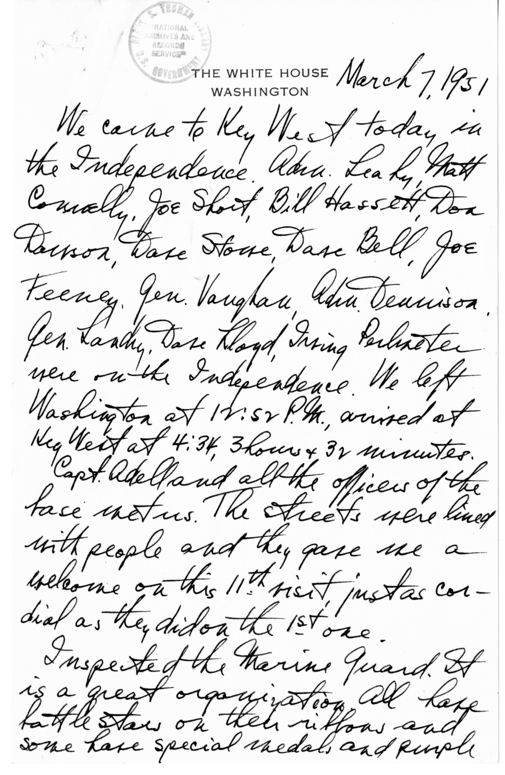 HARRY S. TRUMAN LIBRARY
"NATIONAL
ARCHIVES AND
RECORDS
SERVICE"
U.S. GOVERNMENT
THE WHITE HOUSE
WASHINGTON
March 7, 1951
We came to Key West today in
the Independence. Adm. Leahy, Matt
Connelly, Joe Short, Bill Hassett, Don
Dawson, Dave Stowe, Dave Bell, Joe
Feeney. Gen. Vaughan, Adm. Dennison.
Gen. Landry, Dave Lloyd, Irving Perlmeter
were on the Independence. We left
Washington at 12:52 P.M., arrived at
Key West at 4:34, 3 hours & 32 minutes.
Capt. Adell and all the officers of the
base met us. The streets were lined
with people and they gave me a
welcome on this 11th visit, just as cor-
dial as they did on the 1st one.
Inspected the Marine Guard. It
is a great organization. All have
battle stars on their ribbons and
some have special medals and purple